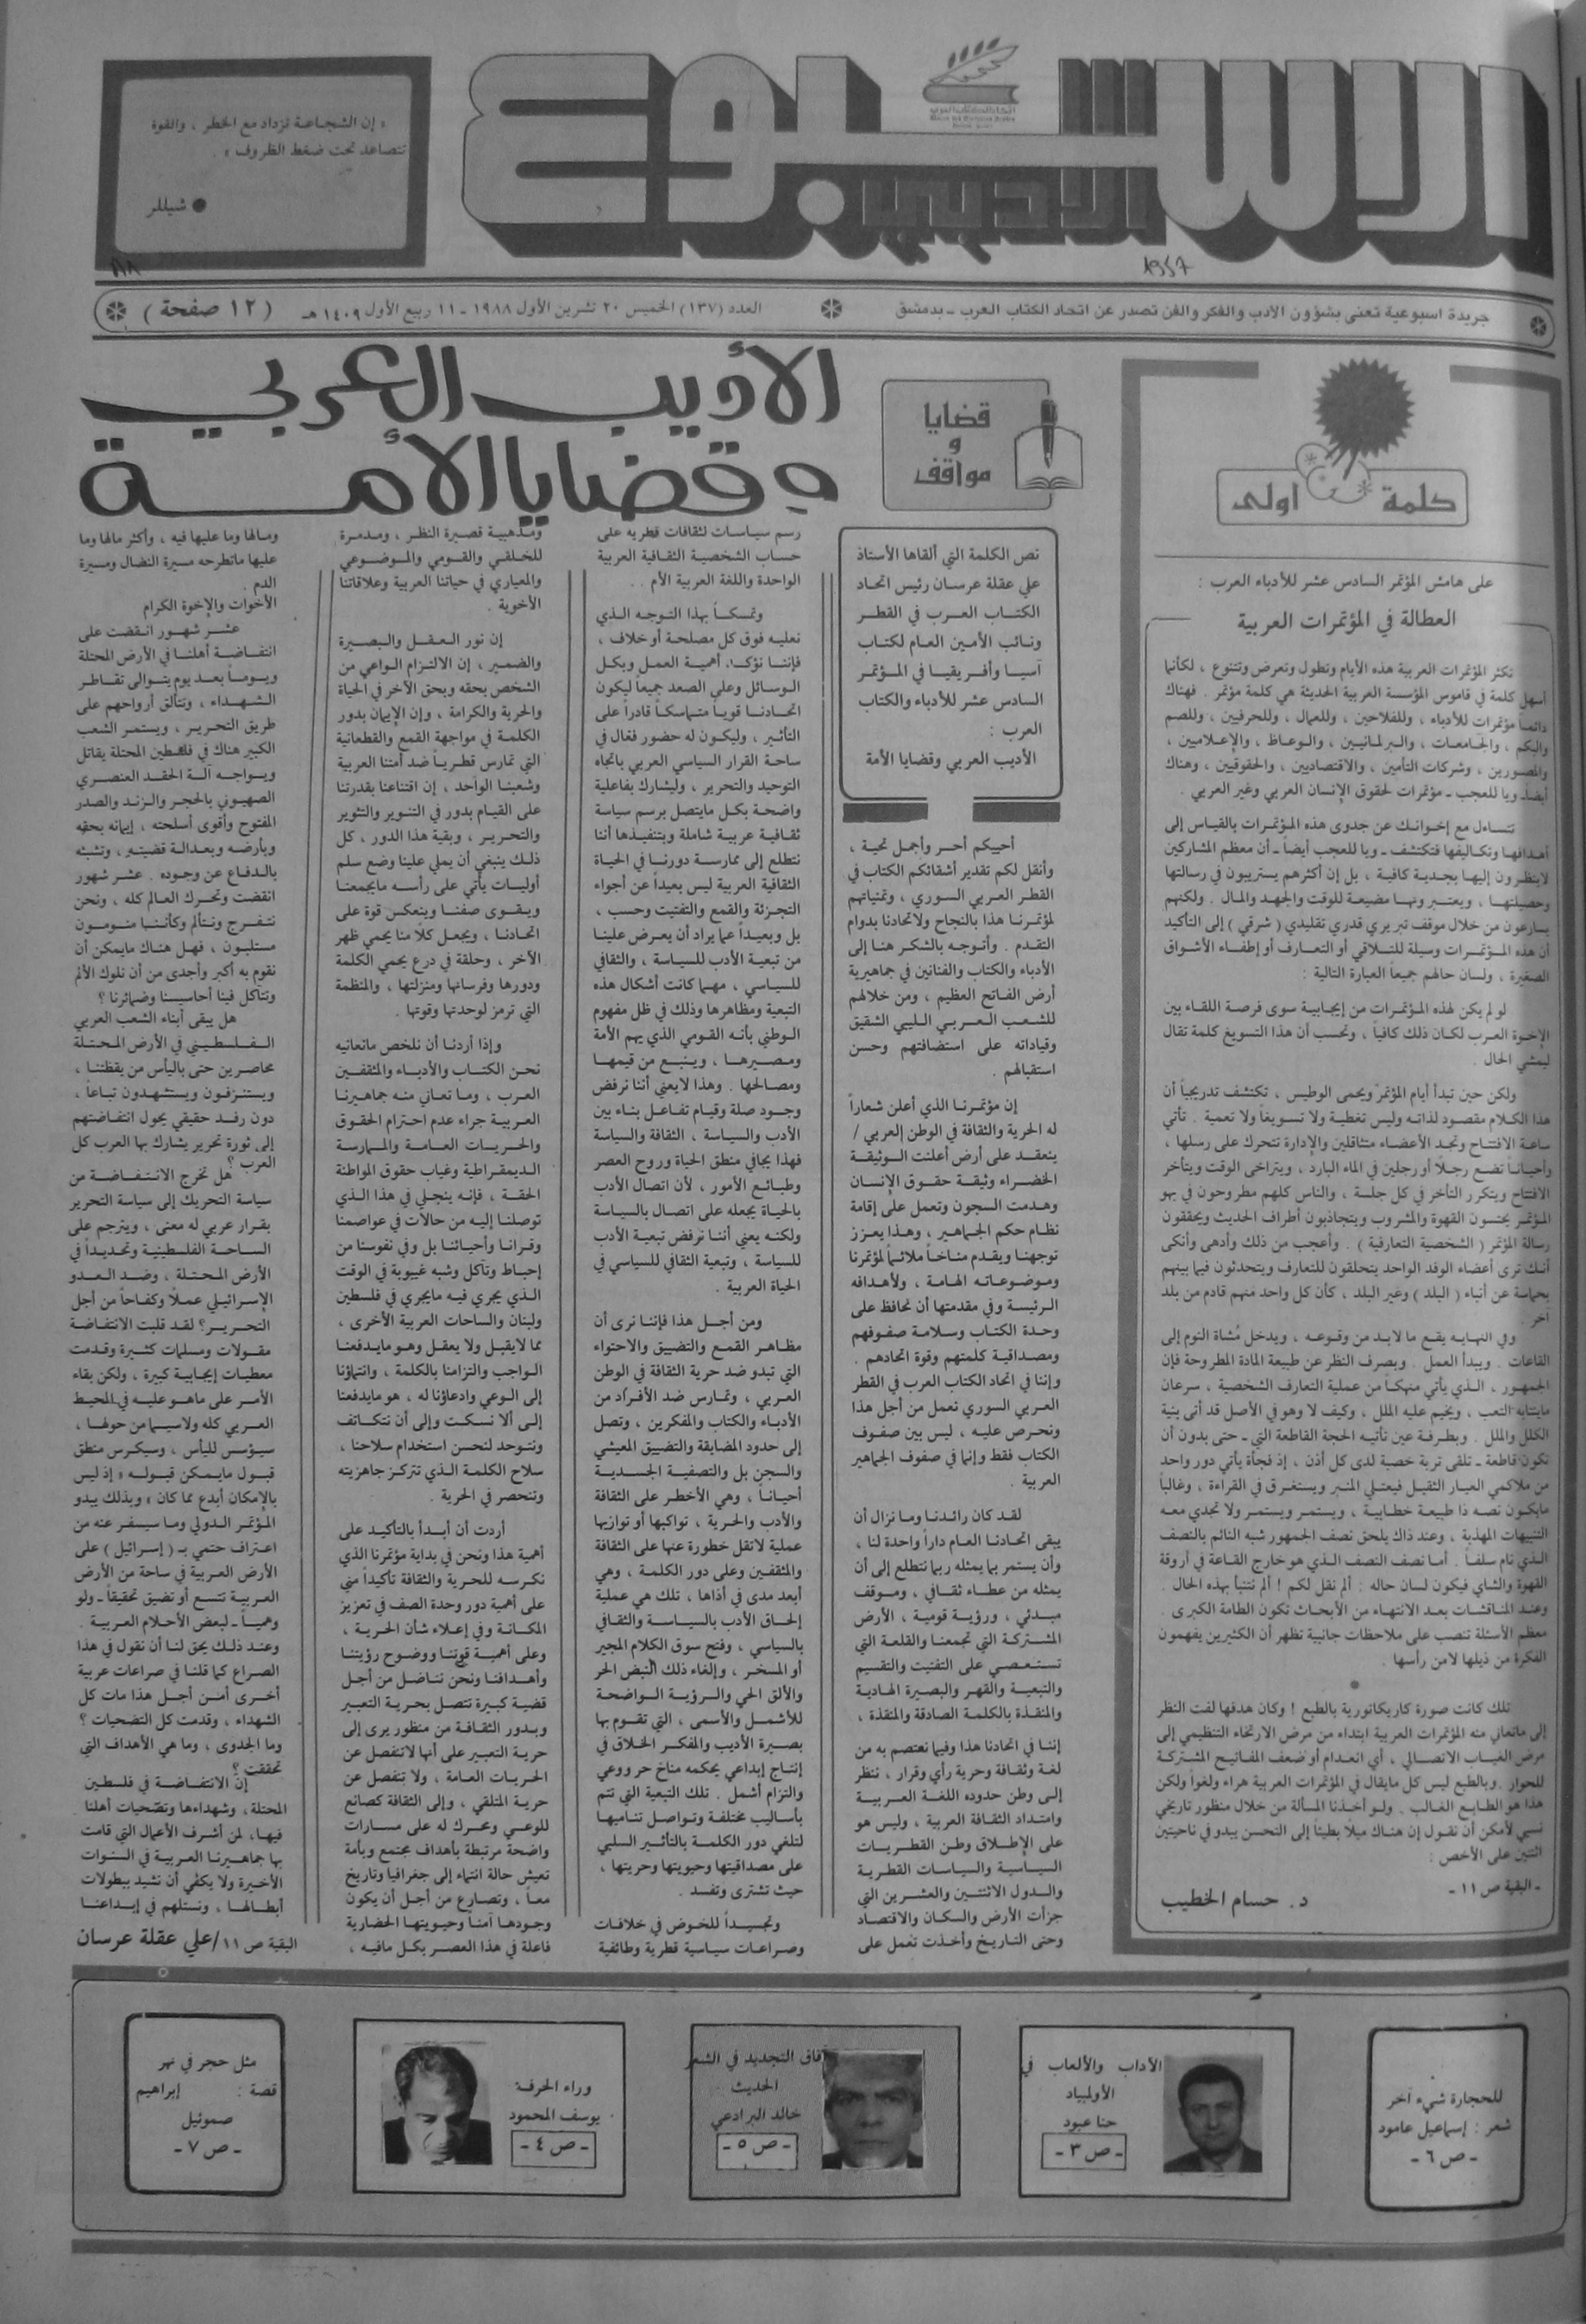 « إن الشجاعة تزداد مع الخطر ، والقوة
تتصاعد تحت ضغط الظروف » .
● شيللر
الاسبوع
الأدبي
اتحاد الكتاب العرب
جريدة اسبوعية تعنى بشؤون الأدب والفكر والفن تصدر عن اتحاد الكتاب العرب - بدمشق
العدد (١٣٧) الخميس ٢٠ تشرين الأول ١٩٨٨ - ١١ ربيع الأول ١٤٠٩ هـ
( ١٢ صفحة )
كلمة أولى
على هامش المؤتمر السادس عشر للأدباء العرب :
العطالة في المؤتمرات العربية
تكثر المؤتمرات العربية هذه الأيام وتطول وتعرض وتتنوع ، لكأنها
أسهل كلمة في قاموس المؤسسة العربية الحديثة هي كلمة مؤتمر . فهناك
دائماً مؤتمرات للأدباء ، وللفلاحين ، وللعمال ، وللحرفيين ، وللصم
والبكم ، والجامعات ، والبرلمانيين ، والوعاظ ، والإعلاميين ،
والمصورين ، وشركات التأمين ، والاقتصاديين ، والحقوقيين ، وهناك
أيضاً ويا للعجب - مؤتمرات لحقوق الإنسان العربي وغير العربي .
تتساءل مع إخوانك عن جدوى هذه المؤتمرات بالقياس إلى
أهدافها وتكاليفها فتكتشف - ويا للعجب أيضاً - أن معظم المشاركين
لاينظرون إليها بجدية كافية ، بل إن أكثرهم يستريبون في رسالتها
وحصيلتها ، ويعتبرونها مضيعة للوقت والجهد والمال . ولكنهم
يسارعون من خلال موقف تبريري قدري تقليدي ( شرقي ) إلى التأكيد
أن هذه المؤتمرات وسيلة للتلاقي أو التعارف أو إطفاء الأشواق
الصغيرة ، ولسان حالهم جميعاً العبارة التالية :
لو لم يكن لهذه المؤتمرات من إيجابية سوى فرصة اللقاء بين
الإخوة العرب لكان ذلك كافياً ، وتحسب أن هذا التسويغ كلمة تقال
ليمشي الحال .
ولكن حين تبدأ أيام المؤتمر ويحمى الوطيس ، تكتشف تدريجياً أن
هذا الكلام مقصود لذاته وليس تغطية ولا تسويغاً ولا تعمية . تأتي
ساعة الافتتاح وتجد الأعضاء متثاقلين والإدارة تتحرك على رسلها ،
وأحياناً تضع رجلاً أو رجلين في الماء البارد ، ويتراخى الوقت ويتأخر
الافتتاح ويتكرر التأخر في كل جلسة ، والناس كلهم مطروحون في بهو
المؤتمر يحتسون القهوة والمشروب ويتجاذبون أطراف الحديث ويحققون
رسالة المؤتمر ( الشخصية التعارفية ) . وأعجب من ذلك وأدهى وأنكى
أنك ترى أعضاء الوفد الواحد يتحلقون للتعارف ويتحدثون فيما بينهم
بحماسة عن أنباء ( البلد ) وغير البلد ، كأن كل واحد منهم قادم من بلد
آخر .
وفي النهاية يقع ما لابد من وقوعه ، ويدخل مُشاة النوم إلى
القاعات . ويبدأ العمل . وبصرف النظر عن طبيعة المادة المطروحة فإن
الجمهور ، الذي يأتي منهكاً من عملية التعارف الشخصية ، سرعان
ماينتابه التعب ، ويخيم عليه الملل ، وكيف لا وهو في الأصل قد أتى بنية
الكلل والملل . وبطرفة عين تأتيه الحجة القاطعة التي - حتى بدون أن
تكون قاطعة - تلقى تربة خصبة لدى كل أذن ، إذ فجأة يأتي دور واحد
من ملاكمي العيار الثقيل فيعتلي المنبر ويستغرق في القراءة ، وغالباً
مايكون نصه ذا طبيعة خطابية ، ويستمر ويستمر ولا تجدي معه
التنبيهات المهذبة ، وعند ذاك يلحق نصف الجمهور شبه النائم بالنصف
الذي نام سلفاً . أما نصف النصف الذي هو خارج القاعة في أروقة
القهوة والشاي فيكون لسان حاله : ألم نقل لكم ! ألم نتنبأ بهذه الحال .
وعند المناقشات بعد الانتهاء من الأبحاث تكون الطامة الكبرى .
معظم الأسئلة تنصب على ملاحظات جانبية تظهر أن الكثيرين يفهمون
الفكرة من ذيلها لامن رأسها .
●
تلك كانت صورة كاريكاتورية بالطبع ! وكان هدفها لفت النظر
إلى ماتعاني منه المؤتمرات العربية ابتداء من مرض الارتخاء التنظيمي إلى
مرض الغياب الاتصالي ، أي انعدام أو ضعف المفاتيح المشتركة
للحوار . وبالطبع ليس كل مايقال في المؤتمرات العربية هراء ولغواً ولكن
هذا هو الطابع الغالب . ولو أخذنا المسألة من خلال منظور تاريخي
نسبي لأمكن أن نقول إن هناك ميلاً بطيئاً إلى التحسن يبدو في ناحيتين
اثنتين على الأخص :
- البقية ص ١١ -
د. حسام الخطيب
قضايا
و
مواقف
الأديب العربي
وقضايا الأمة
نص الكلمة التي ألقاها الأستاذ
علي عقلة عرسان رئيس اتحاد
الكتاب العرب في القطر
ونائب الأمين العام لكتاب
آسيا وأفريقيا في المؤتمر
السادس عشر للأدباء والكتاب
العرب :
الأديب العربي وقضايا الأمة
أحييكم أحر وأجمل تحية ،
وأنقل لكم تقدير أشقائكم الكتاب في
القطر العربي السوري ، وتمنياتهم
لمؤتمرنا هذا بالنجاح ولاتحادنا بدوام
التقدم . وأتوجه بالشكر هنا إلى
الأدباء والكتاب والفنانين في جماهيرية
أرض الفاتح العظيم ، ومن خلالهم
للشعب العربي الليبي الشقيق
وقياداته على استضافتهم وحسن
استقبالهم .
إن مؤتمرنا الذي أعلن شعاراً
له الحرية والثقافة في الوطن العربي /
ينعقد على أرض أعلنت الوثيقة
الخضراء وثيقة حقوق الإنسان
وهدمت السجون وتعمل على إقامة
نظام حكم الجماهير ، وهذا يعزز
توجهنا ويقدم مناخاً ملائماً لمؤتمرنا
وموضوعاته الهامة ، ولأهدافه
الرئيسة وفي مقدمتها أن نحافظ على
وحدة الكتاب وسلامة صفوفهم
ومصداقية كلمتهم وقوة اتحادهم .
وإننا في اتحاد الكتاب العرب في القطر
العربي السوري نعمل من أجل هذا
ونحرص عليه ، ليس بين صفوف
الكتاب فقط وإنما في صفوف الجماهير
العربية .
لقد كان رائدنا وما نزال أن
يبقى اتحادنا العام داراً واحدة لنا ،
وأن يستمر بما يمثله ربما نتطلع إلى أن
يمثله من عطاء ثقافي ، وموقف
مبدئي ، ورؤية قومية ، الأرض
المشتركة التي تجمعنا والقلعة التي
تستعصي على التفتيت والتقسيم
والتبعية والقهر والبصيرة الهادية
والمنقذة بالكلمة الصادقة والمنقذة ،
إننا في اتحادنا هذا وفيما نعتصم به من
لغة وثقافة وحرية رأي وقرار ، ننظر
إلى وطن حدوده اللغة العربية
وامتداد الثقافة العربية ، وليس هو
على الإطلاق وطن القطريات
السياسية والسياسات القطرية
والدول الاثنتين والعشرين التي
جزأت الأرض والسكان والاقتصاد
وحتى التاريخ وأخذت تعمل على
رسم سياسات لثقافات قطرية على
حساب الشخصية الثقافية العربية
الواحدة واللغة العربية الأم . .
وتمسكاً بهذا التوجه الذي
نعليه فوق كل مصلحة أو خلاف ،
فإننا نؤكد أهمية العمل وبكل
الوسائل وعلى الصعد جميعاً ليكون
اتحادنا قوياً متماسكاً قادراً على
التأثير ، وليكون له حضور فعّال في
ساحة القرار السياسي العربي باتجاه
التوحيد والتحرير ، وليشارك بفاعلية
واضحة بكل مايتصل برسم سياسة
ثقافية عربية شاملة وبتنفيذها أننا
نتطلع إلى ممارسة دورنا في الحياة
الثقافية العربية ليس بعيداً عن أجواء
التجزئة والقمع والتفتيت وحسب ،
بل وبعيداً عما يراد أن يعرض علينا
من تبعية الأدب للسياسة ، والثقافي
للسياسي ، مهما كانت أشكال هذه
التبعية ومظاهرها وذلك في ظل مفهوم
الوطني بأنه القومي الذي يهم الأمة
ومصيرها ، وينبع من قيمها
ومصالحها . وهذا لايعني أننا نرفض
وجود صلة وقيام تفاعل بناء بين
الأدب والسياسة ، الثقافة والسياسة
فهذا يجافي منطق الحياة وروح العصر
وطبائع الأمور ، لأن اتصال الأدب
بالحياة يجعله على اتصال بالسياسة
ولكنه يعني أننا نرفض تبعية الأدب
للسياسة ، وتبعية الثقافي للسياسي في
الحياة العربية .
ومن أجل هذا فإننا نرى أن
مظاهر القمع والتضييق والاحتواء
التي تبدو ضد حرية الثقافة في الوطن
العربي ، وتمارس ضد الأفراد من
الأدباء والكتاب والمفكرين ، وتصل
إلى حدود المضايقة والتضييق المعيشي
والسجن بل والتصفية الجسدية
أحياناً ، وهي الأخطر على الثقافة
والأدب والحرية ، تواكبها أو توازيها
عملية لاتقل خطورة عنها على الثقافة
والمثقفين وعلى دور الكلمة ، وهي
أبعد مدى في أذاها ، تلك هي عملية
إلحاق الأدب بالسياسة والثقافي
بالسياسي ، وفتح سوق الكلام المجير
أو المسخر ، وإلغاء ذلك النبض الحر
والألق الحي والرؤية الواضحة
للأشمل والأسمى ، التي تقوم بها
بصيرة الأديب والمفكر الخلاق في
إنتاج إبداعي يحكمه مناخ حر ووعي
والتزام أشمل . تلك التبعية التي تتم
بأساليب مختلفة وتواصل تناميها
لتلغي دور الكلمة بالتأثير السلبي
على مصداقيتها وحيويتها وحريتها ،
حيث تشترى وتفسد .
وتجسيداً للخوض في خلافات
وصراعات سياسية قطرية وطائفية
ومذهبية قصيرة النظر ، ومدمرة
للخلقي والقومي والموضوعي
والمعياري في حياتنا العربية وعلاقاتنا
الأخوية .
إن نور العقل والبصيرة
والضمير ، إن الالتزام الواعي من
الشخص بحقه وبحق الآخر في الحياة
والحرية والكرامة ، وإن الإيمان بدور
الكلمة في مواجهة القمع والقطعانية
التي تمارس قطرياً ضد أمتنا العربية
وشعبنا الواحد ، إن اقتناعنا بقدرتنا
على القيام بدور في التنوير والتثوير
والتحرير ، وبقية هذا الدور ، كل
ذلك ينبغي أن يملي علينا وضع سلم
أوليات يأتي على رأسه مايجمعنا
ويقوى صفنا وينعكس قوة على
اتحادنا ، ويجعل كلاً منا يحمي ظهر
الآخر ، وحلقة في درع يحمي الكلمة
ودورها وفرسانها ومنزلتها ، والمنظمة
التي ترمز لوحدتها وقوتها .
وإذا أردنا أن نلخص ماتعانيه
نحن الكتاب والأدباء والمثقفين
العرب ، وما تعاني منه جماهيرنا
العربية جراء عدم احترام الحقوق
والحريات العامة والممارسة
الديمقراطية وغياب حقوق المواطنة
الحقة ، فإنه ينجلي في هذا الذي
توصلنا إليه من حالات في عواصمنا
وقرانا وأحيائنا بل وفي نفوسنا من
إحباط وتآكل وشبه غيبوبة في الوقت
الذي يجري فيه مايجري في فلسطين
ولبنان والساحات العربية الأخرى ،
مما لايقبل ولا يعقل وهو مايدفعنا
الواجب والتزامنا بالكلمة ، وانتماؤنا
إلى الوعي وادعاؤنا له ، هو مايدفعنا
إلى ألا نسكت وإلى أن نتكاتف
ونتوحد لنحسن استخدام سلاحنا ،
سلاح الكلمة الذي تتركز جاهزيته
وتنحصر في الحرية .
أردت أن أبدأ بالتأكيد على
أهمية هذا ونحن في بداية مؤتمرنا الذي
نكرسه للحرية والثقافة تأكيداً مني
على أهمية دور وحدة الصف في تعزيز
المكانة وفي إعلاء شأن الحرية ،
وعلى أهمية قوتنا ووضوح رؤيتنا
وأهدافنا ونحن نناضل من أجل
قضية كبيرة تتصل بحرية التعبير
وبدور الثقافة من منظور يرى إلى
حرية التعبير على أنها لاتنفصل عن
الحريات العامة ، ولا تنفصل عن
حرية المتلقي ، وإلى الثقافة كصانع
للوعي ومحرك له على مسارات
واضحة مرتبطة بأهداف مجتمع وبأمة
تعيش حالة انتماء إلى جغرافيا وتاريخ
معاً ، وتصارع من أجل أن يكون
وجودها آمناً وحيويتها الحضارية
فاعلة في هذا العصر بكل مافيه ،
ومالها وما عليها فيه ، وأكثر مالها وما
عليها ماتطرحه مسيرة النضال ومسيرة
الدم .
الأخوات والإخوة الكرام
عشر شهور انقضت على
انتفاضة أهلنا في الأرض المحتلة
ويوماً بعد يوم يتوالى تقاطر
الشهداء ، وتتألق أرواحهم على
طريق التحرير ، ويستمر الشعب
الكبير هناك في فلسطين المحتلة يقاتل
ويواجه آلة الحقد العنصري
الصهيوني بالحجر والزند والصدر
المفتوح وأقوى أسلحته ، إيمانه بحقه
وبأرضه وبعدالة قضيته ، وتشبثه
بالدفاع عن وجوده . عشر شهور
انقضت وتحرك العالم كله ، ونحن
نتفرج ونتألم وكأننا منومون
مستلبون ، فهل هناك مايمكن أن
نقوم به أكبر وأجدى من أن نلوك الألم
وتتآكل فينا أحاسيسنا وضمائرنا ؟
هل يبقى أبناء الشعب العربي
الفلسطيني في الأرض المحتلة
محاصرين حتى باليأس من يقظتنا ،
ويستنزفون ويستشهدون تباعاً ،
دون رفد حقيقي يحول انتفاضتهم
إلى ثورة تحرير يشارك بها العرب كل
العرب ؟
هل تخرج الانتفاضة من
سياسة التحريك إلى سياسة التحرير
بقرار عربي له معنى ، ويترجم على
الساحة الفلسطينية وتحديداً في
الأرض المحتلة ، وضد العدو
الإسرائيلي عملاً وكفاحاً من أجل
التحرير؟ لقد قلبت الانتفاضة
مقولات ومسلمات كثيرة وقدمت
معطيات إيجابية كبيرة ، ولكن بقاء
الأمر على ماهو عليه في المحيط
العربي كله ولاسيما من حولها ،
سيؤسس لليأس ، وسيكرس منطق
قبول مايمكن قبوله « إذ ليس
بالإمكان أبدع مما كان » وبذلك يبدو
المؤتمر الدولي وما سيسفر عنه من
اعتراف حتمي بـ ( إسرائيل ) على
الأرض العربية في ساحة من الأرض
العربية تتسع أو تضيق تحقيقاً - ولو
وهمياً - لبعض الأحلام العربية .
وعند ذلك يحق لنا أن نقول في هذا
الصراع كما قلنا في صراعات عربية
أخرى أمن أجل هذا مات كل
الشهداء ، وقدمت كل التضحيات ؟
وما الجدوى ، وما هي الأهداف التي
تحققت ؟
إن الانتفاضة في فلسطين
المحتلة ، وشهداءها وتضحيات أهلنا
فيها ، لمن أشرف الأعمال التي قامت
بها جماهيرنا العربية في السنوات
الأخيرة ولا يكفي أن نشيد ببطولات
أبطالها ، ونستلهم في إبداعنا
البقية ص ١١ / علي عقلة عرسان
للحجارة شيء آخر
شعر : إسماعيل عامود
- ص ٦ -
الأداب والألعاب في
الأولمبياد
حنا عبود
- ص ٣ -
آفاق التجديد في الشعر
الحديث
خالد البرادعي
- ص ٥ -
وراء الحرفة
يوسف المحمود
- ص ٤ -
مثل حجر في نهر
قصة : إبراهيم
صموئيل
- ص ٧ -